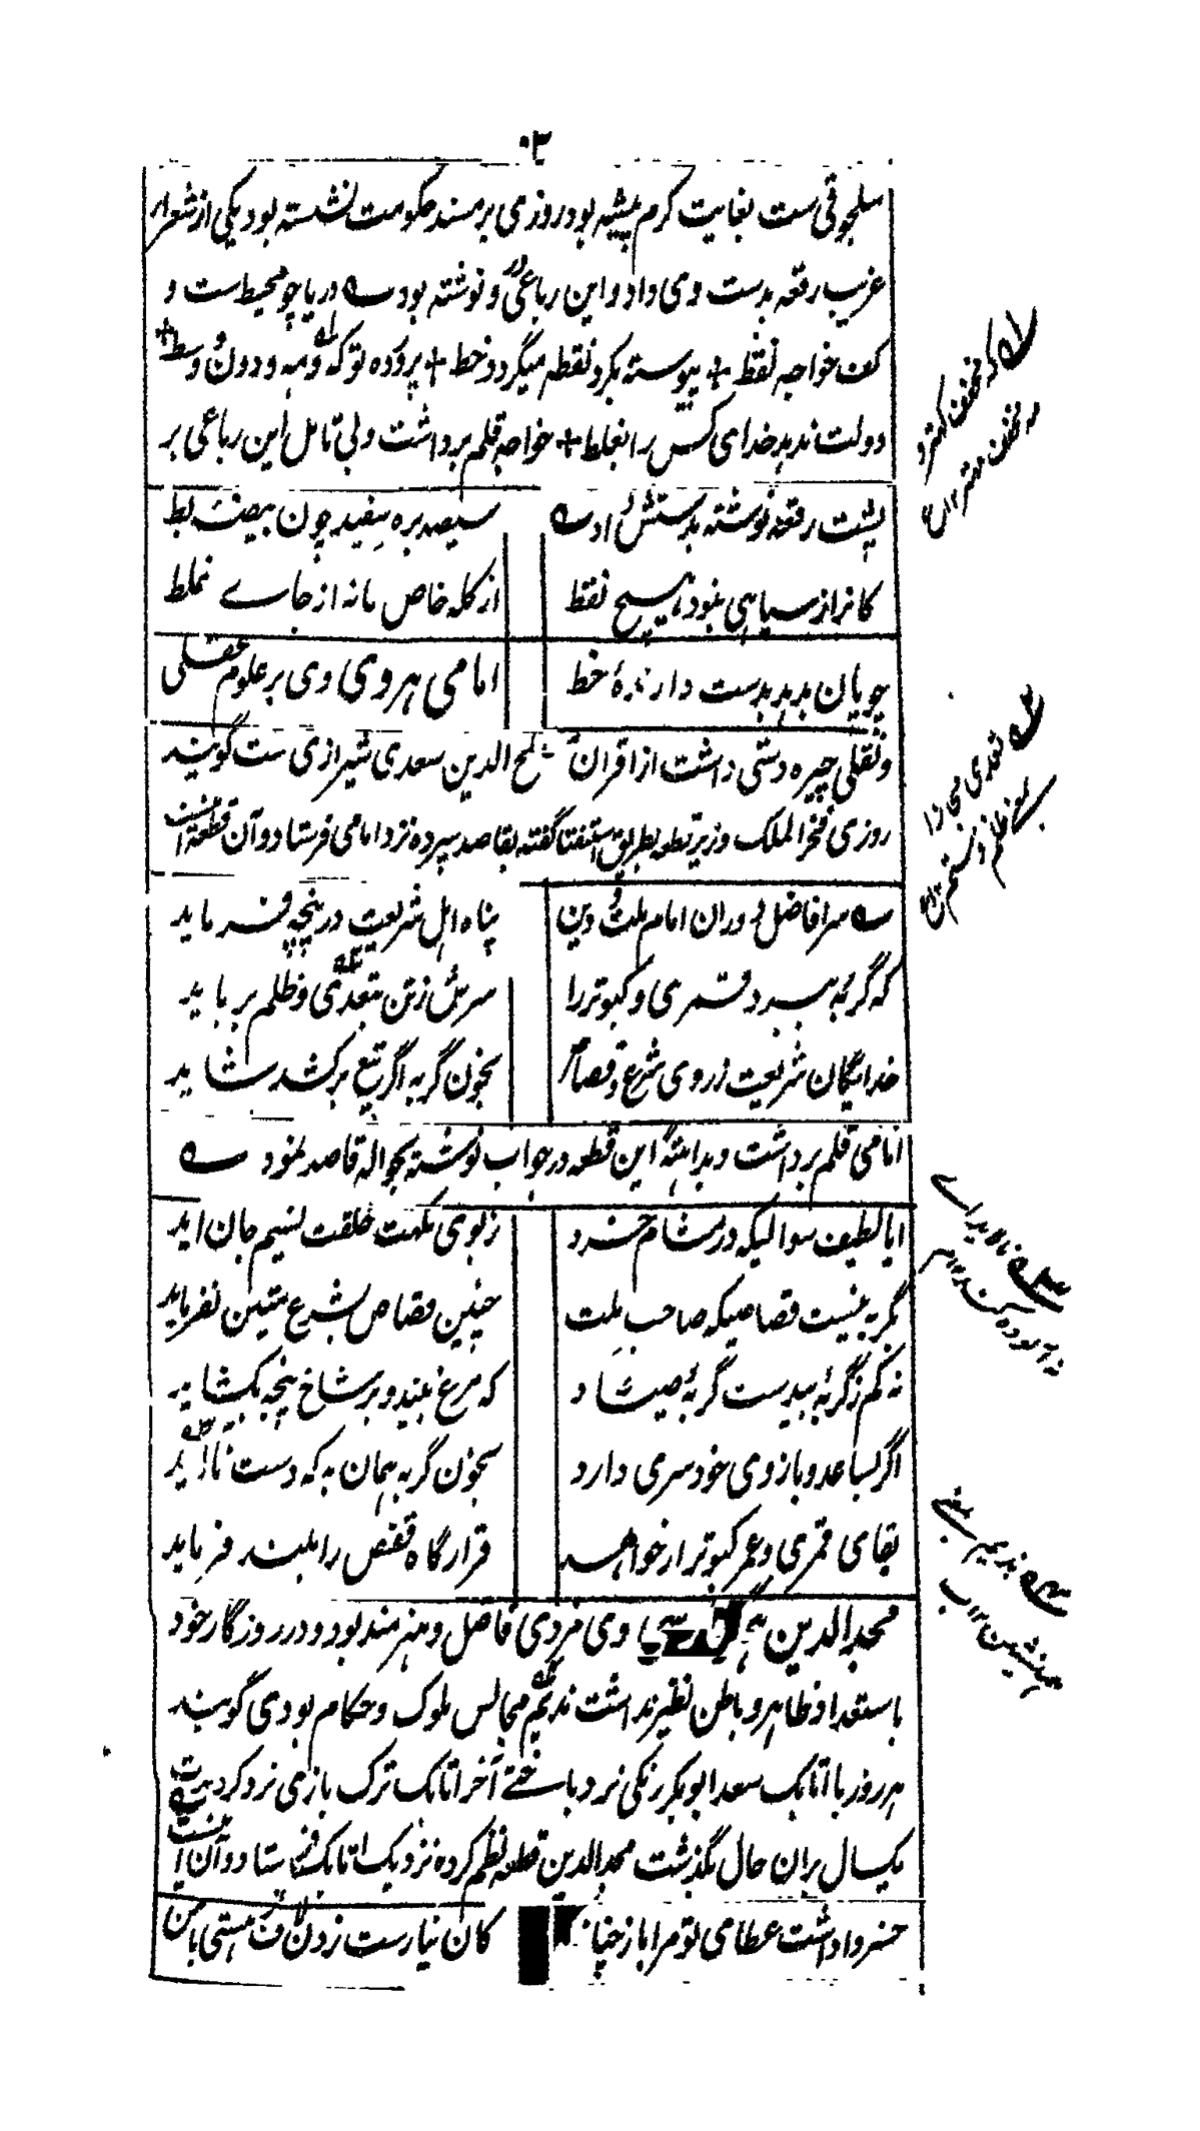 ۳۰
سلجوقی ست بغایت کرم پیشه بود روزی بر مسند حکومت نشسته بود یکی از شعرای
غریب رقعه بدست وی داد و این رباعی در و نوشته بود ے دریا چو محیط ست و
کف خواجه نقط + پیوسته بگرد نقطه میگردد خط + پرورده تو که و مه و دون و وسط +
دولت ندهد خدای کس را بغلط + خواجه قلم برداشت و بی تامل این رباعی بر
پشت رقعه نوشته بدستش داد ے سیصد بره سفید چون بیضهٔ بط
کانرا ز سیاهی نبود هیچ نقط از گله خاص ما نه از جاے غلط
چوپان بدهد بدست دارندهٔ خط امامی هروی وی بر علوم عقلی
و نقلی چیره دستی داشت از اقران مصلح الدین سعدی شیرازی ست گویند
روزی فخر الملک وزیر قطعه بطریق استفتا گفته بقاصد سپرده نزد امامی فرستاد و آن قطعه اینست
ے سر افاضل دوران امام ملت و دین پناه اهل شریعت درینچه فرماید
که گربه ببرد قمری و کبوتر را سرش ز تن بتعدی و ظلم برباید
خدایگان شریعت ز روی شرع و قصاص بخون گربه اگر تیغ برکشد شاید
امامی قلم برداشت و بداهتهً این قطعه در جواب نوشته بحواله قاصد نمود ے
ایا لطیف سوالیکه در مشام خرد ز بوی نکهت خلقت نسیم جان اید
بگربه نیست قصاصیکه صاحب ملت چنین قصاص بشرع متین نفرماید
نه کم ز گربهٔ بیدست گربهٔ صیاد که مرغ بیند و بر شاخ پنجه بگشاید
اگر بساعد و بازوی خود سری دارد بخون گربه همان به که دست نالاید
بقای قمری و عمر کبوتر ار خواهد قرارگاه قفص را بلند فرماید
مجد الدین وی مردی فاضل و هنرمند بود و در روزگار خود
باستعداد ظاهر و باطن نظیر نداشت ندیم مجالس ملوک و حکام بودی گویند
هر روز با اتابک سعد ابوبکر زنکی نرد باختے آخر اتابک ترک بازی نرد کرد مدت
یکسال بران حال بگذشت مجد الدین قطعه نظم کرده نزدیک اتابک فرستاد و آن اینست
خسروا داشت عطامی تو مرا باز چنان کان نیارست زدن هستی با من
ے که مخفف کهتر و
مه مخفف مهتر ۱۲
ے تعدی تجاوز
بمعنی ظلم و ستم ۱۲
ے نالاید اے
نه آلوده کند ۱۲
ے ندیم بمعنی
همنشین ۱۲